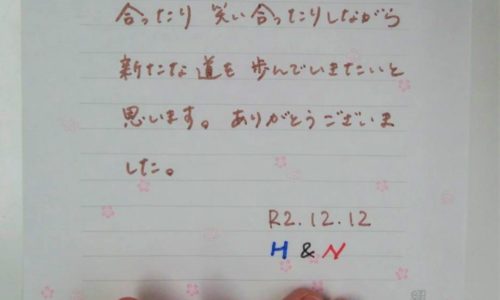 合ったり 笑い合ったりしながら
新たな道を 歩んでいきたいと
思います。ありがとうございま
した。
R2.12.12
H & N